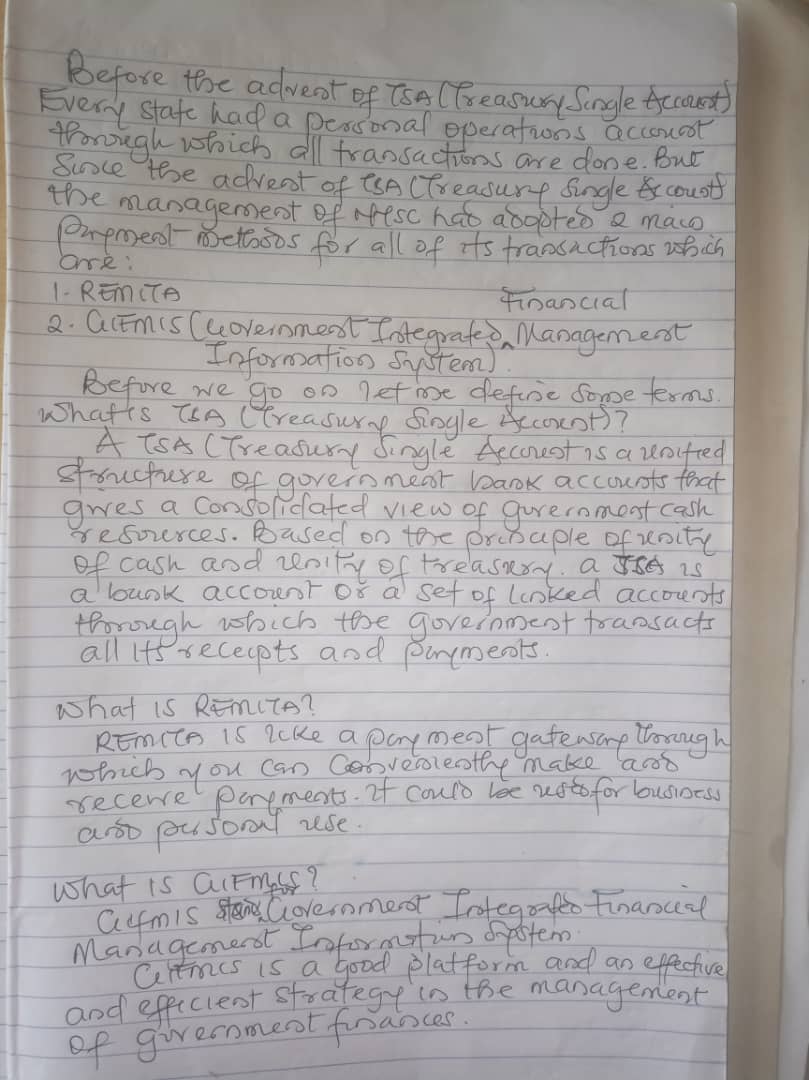 Before the advent of TSA (Treasury Single Account)
Every state had a personal operations account
through which all transactions are done. But
Since the advent of TSA (Treasury Single Account)
the management of NYSC has adopted 2 main
Payment methods for all of its transactions which
are:
1- REMITA
2. GIFMIS (Government Integrated Financial Management
Information System).
Before we go on let me define some terms.
What is TSA (Treasury Single Account)?
A TSA (Treasury Single Account is a unified
structure of government bank accounts that
gives a consolidated view of government cash
resources. Based on the principle of unity
of cash and unity of treasury. a TSA is
a bank account or a set of linked accounts
through which the government transacts
all its receipts and payments.
What is REMITA?
REMITA is like a payment gateway through
which you can conveniently make and
receive payments. It could be used for business
and personal use.
What is GIFMIS?
Gifmis stands for Government Integrated Financial
Management Information System.
GIFMIS is a good platform and an effective
and efficient strategy in the management
of government finances.